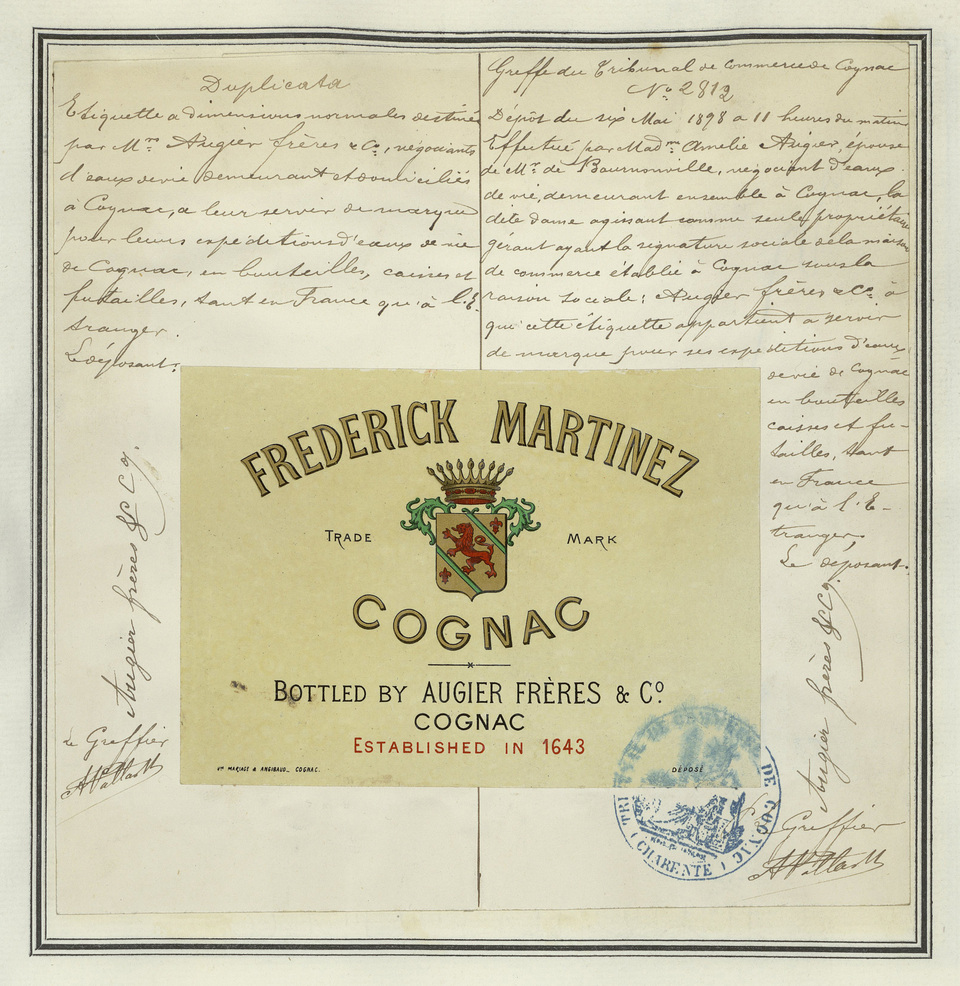 Duplicata
Etiquette a dimensions normales destinée
par Mrs Augier frères & Co, négociants
d'eaux de vie demeurant et domiciliés
à Cognac, a leur servir de marque
pour leurs expéditions d'eaux de vie
de Cognac, en bouteilles, caisses et
futailles, tant en France qu'à l'E-
tranger.
Le déposant,
Augier frères & Co.
Le Greffier
Greffe du Tribunal de Commerce de Cognac
No 2812
Dépôt du six Mai 1898 a 11 heures du matin
Effectué par Madme Amelie Augier, épouse
de Mr de Bournonville, négociant d'eaux
de vie, demeurant ensemble à Cognac, la
dite dame agissant comme seule propriétaire
gérant ayant la signature sociale de la maison
de commerce établie à Cognac sous la
raison sociale: Augier frères & Co à
qui cette étiquette appartient a servir
de marque pour ses expéditions d'eaux
de vie de Cognac
en bouteilles
caisses et fu-
tailles, tant
en France
qu'à l'E-
tranger.
Le déposant.
Augier frères & Co.
Greffier
FREDERICK MARTINEZ
TRADE MARK
COGNAC
BOTTLED BY AUGIER FRÈRES & Co
COGNAC
ESTABLISHED IN 1643
Vve MARIAGE & ANGIBAUD_ COGNAC.
DÉPOSÉ
TRIBUNAL DE COMMERCE DE COGNAC
(CHARENTE)